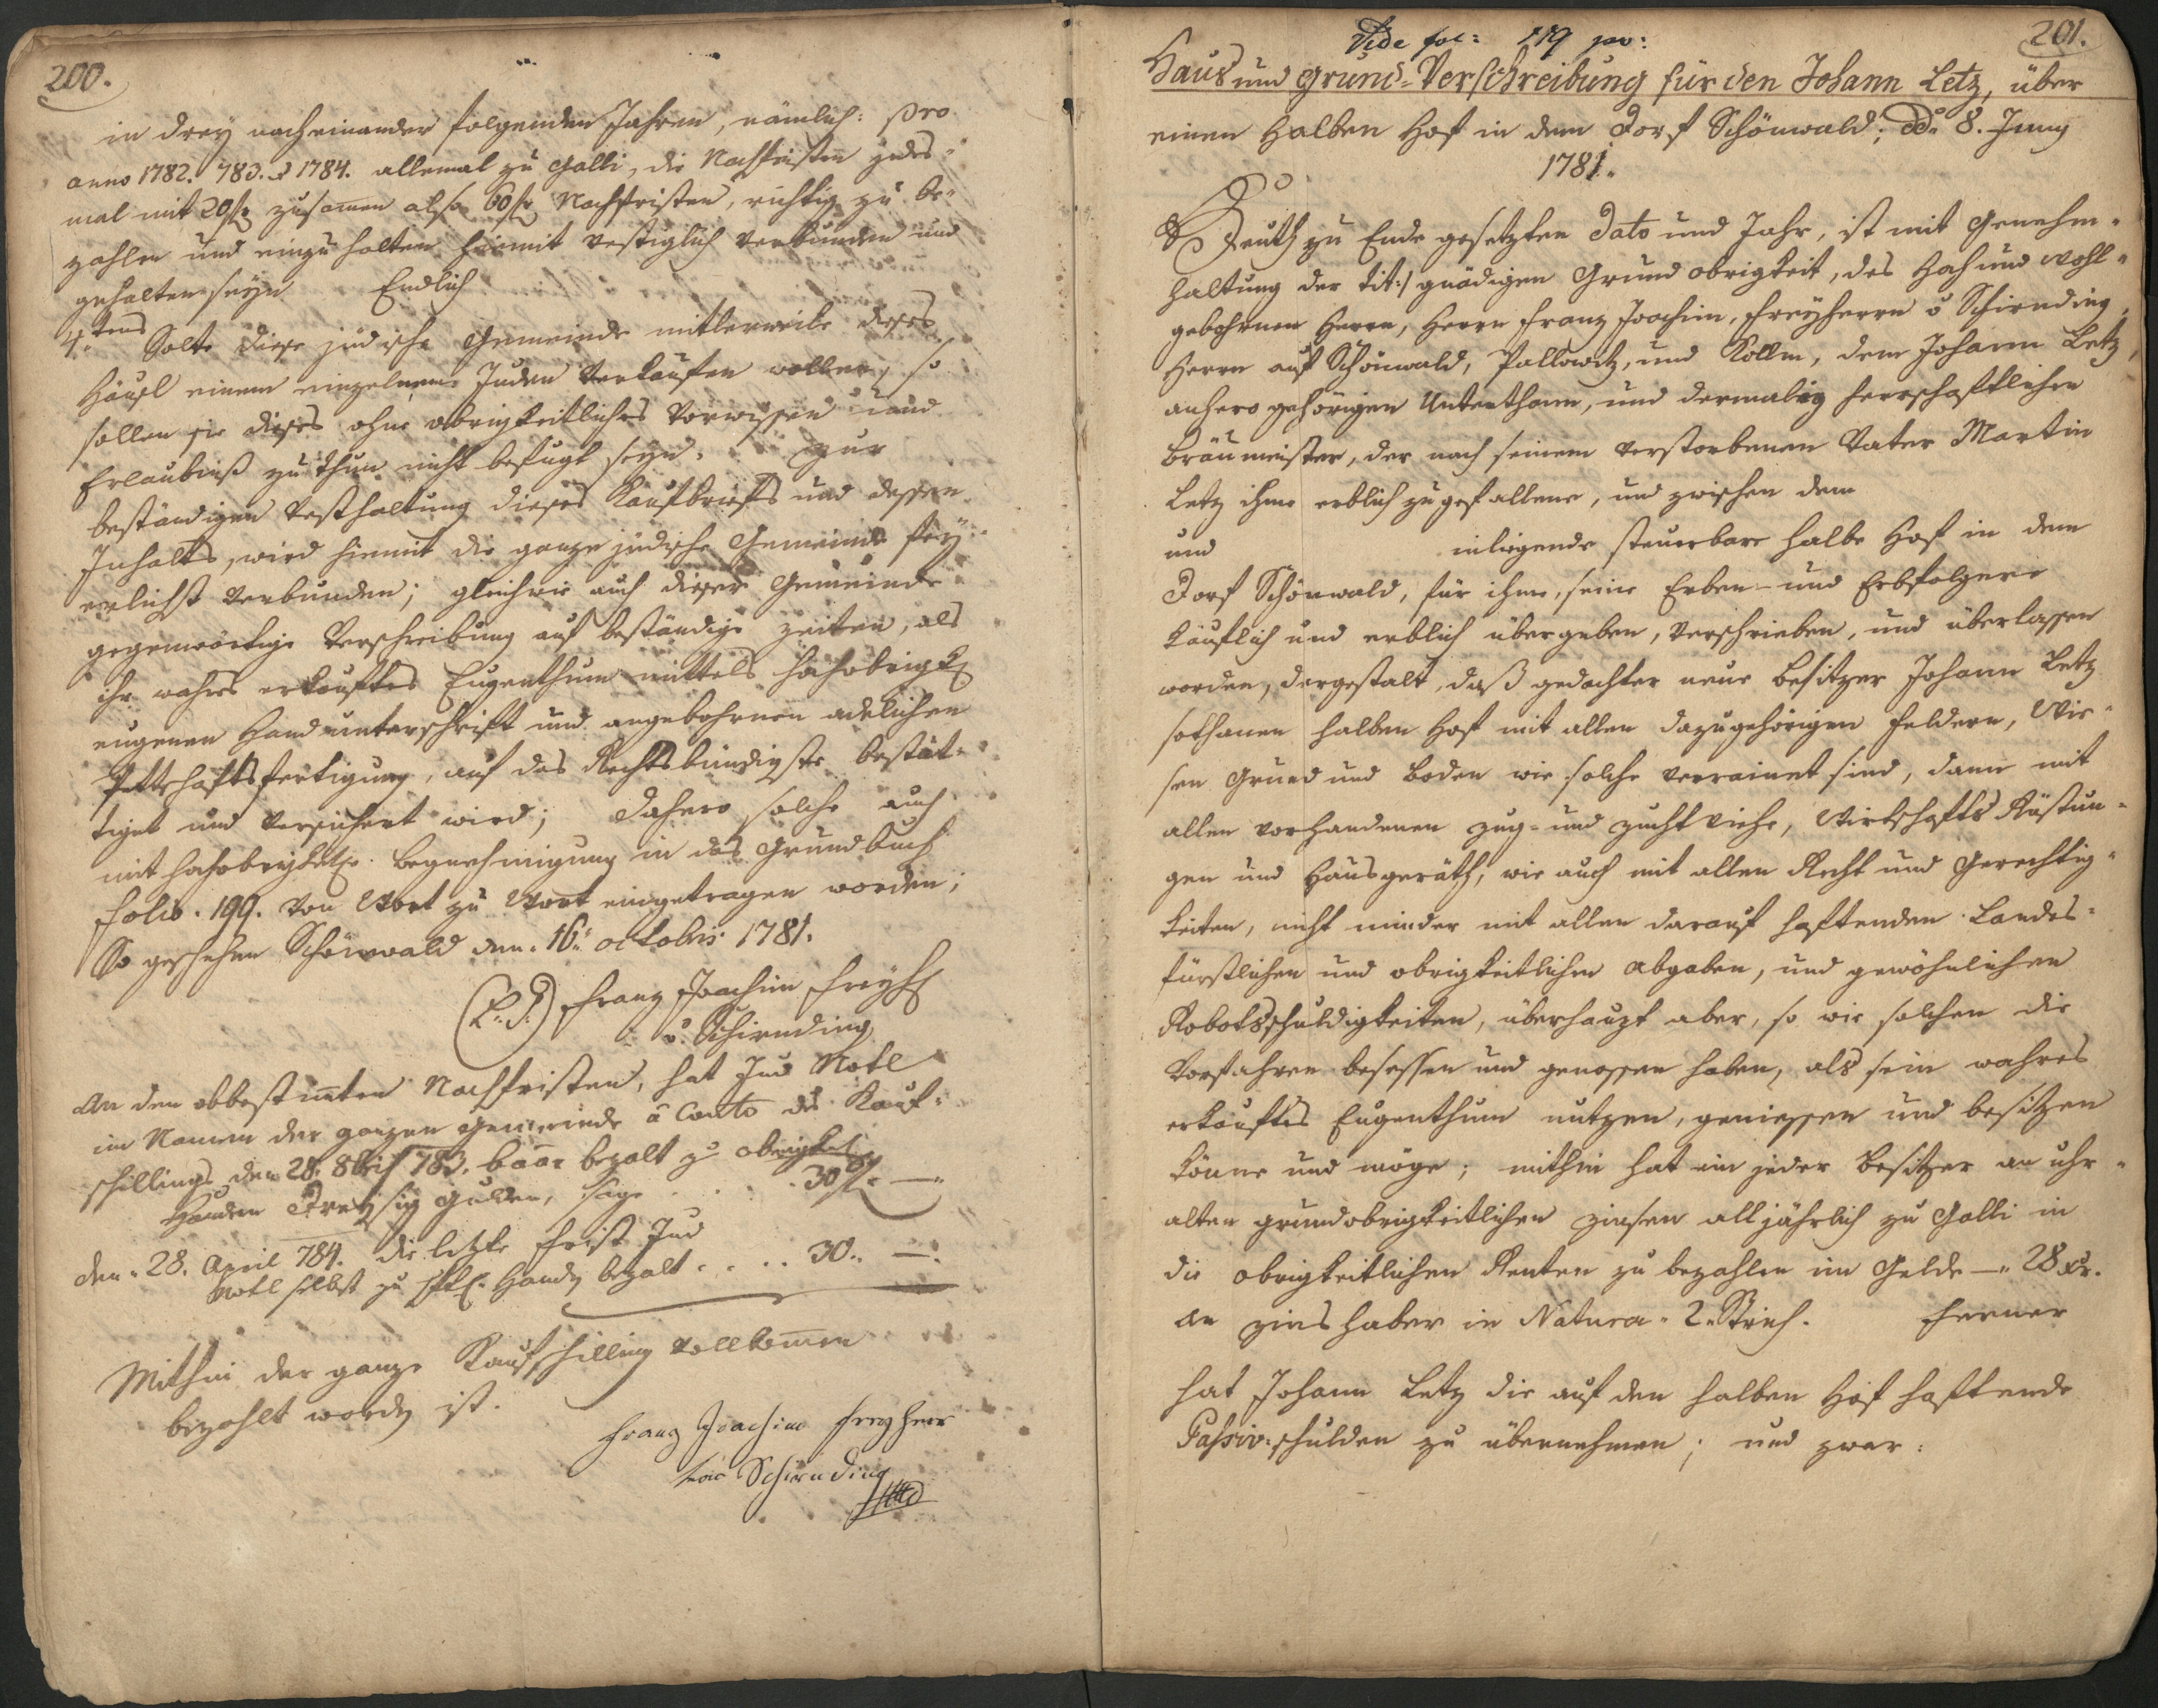 200.
in drey nacheinander folgenden Jahren, nämlich: pro
anno 1782. 783. & 1784. allemal zu Galli, die Nachfristen jedes-
mal mit 20 f. zusamen also 60 f. Nachfristen, richtig zu be-
zahlen und einzuhalten hiemit vestiglich verbunden und
gehalten seyn. Endlich
4.tens Solte diese jüdische Gemeinde mitlerweile dieses
Häusl einem einzelnem Juden verkaufen wollen, so
sollen sie dieses ohne obrigkeitliches Vorwissen und
Erlaubniß zu thun nicht befugt seyn. Zur
beständigen Vesthaltung dieses Kaufbriefs und dessen
Inhalts, wird hiemit die ganze jüdische Gemeinde fey-
erlichst verbunden; gleichwie auch dieser Gemeinde
gegenwärtige Verschreibung auf beständige Zeiten, als
ihr wahres erkauftes Eugenthum mittels hochobrigk.
eugenen Handunterschrift und angebohrnen adelichen
Pettschaftsfertigung, auf das Rechtsbündigste bestät-
tiget und versichert wird; Dahero solche auch
mit hochobrigktl. Begnehmigung in das Grundbuch
Folio. 199. von Wort zu Wort eingetragen worden;
So geschehen Schönwald den. 16. octobris 1781.
(L. S.) Franz Joachim Freyh.
v. Schirnding
An den obbestimten Nachfristen, hat Jud Motl
im Namen der ganzen Gemeinde à Conto des Kauf-
schillings den 28. 8bris 783. baar bezalt zu obrigktl.
Handen Dreysig Gulden, sage . . . . 30 f. —
den. 28. April 784. die letzte Frist Jud
Motl selbst zu Handen bezalt . . . . 30.. —.
Mithin der ganze Kaufschilling vollkomen
bezahlt worden ist.
Franz Joachim Freyherr
von Schirnding
Vide fol: 119
201.
Haus und Grund-Verschreibung für den Johann Letz, über
einen Halben Hof in dem Dorf Schönwald; dd. 8. Juny
1781.
Heuth zu Ende gesetzten Dato und Jahr, ist mit Genehm-
haltung der tit:/ gnädigen Grundobrigkeit, des Hoch und Wohl-
gebohrnen Herrn, Herrn Franz Joachim, Freyherrn v Schirnding,
Herrn auf Schönwald, Pallowitz, und Kollm, dem Johann Letz,
anhero gehörigen Unterthann, und dermalig herrschaftlichen
Bräumeister, der nach seinem verstorbenen Vater Martin
Letz ihme erblich zugefallene, und zwischen dem
und inligende steuerbare halbe Hof in dem
Dorf Schönwald, für ihme, seine Erben- und Erbfolgere
käuflich und erblich übergeben, verschrieben, und überlassen
worden, dergestalt, daß gedachter neue Besitzer Johann Letz
sothanen halben Hof mit allen dazugehörigen Feldern, Wie-
sen Grund und Boden wie solche verrainet sind, dann mit
allen vorhandenen Zug- und Zuchtviehe, Wirtschafts Rüstun-
gen und Hausgeräth, wie auch mit allen Recht und Gerechtig-
keiten, nicht minder mit allen darauf haftenden Landes-
fürstlichen und obrigkeitlichen Abgaben, und gewöhnlichen
Robotsschuldigkeiten, überhaupt aber, so wie solchen die
Vorfahren besessen und genossen haben, als sein wahres
erkauftes Eugenthum nutzen, geniessen und besitzen
könne und möge; mithin hat ein jeder Besitzer an uhr-
alten grundobrigkeitlichen Zinsen alljährlich zu Galli in
die obrigkeitlichen Renten zu bezahlen im Gelde — 28 xr.
An Zinshaber in Natura. 2. Strich. Ferner
hat Johann Letz die auf den halben Hof haftende
Passiv-schulden zu übernehmen; und zwar: